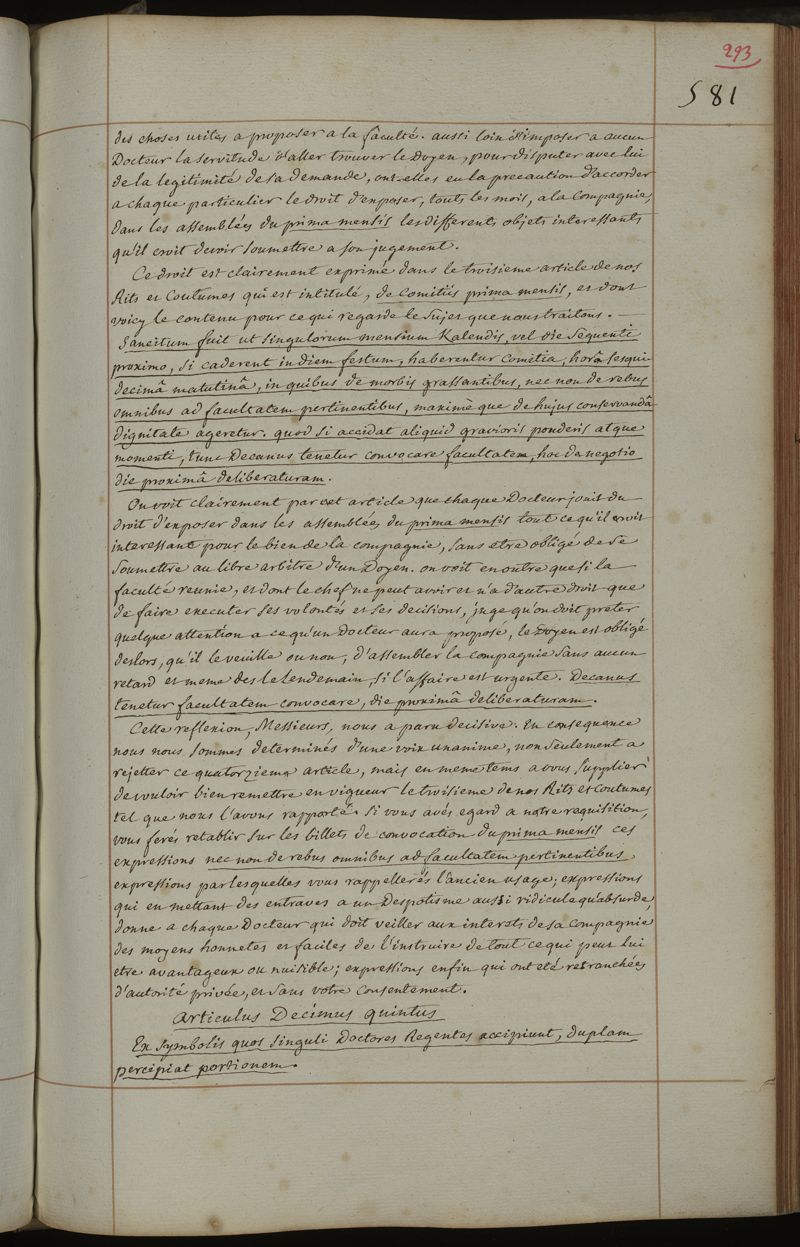 293
581
des choses utiles a proposer a la faculté. aussi loin d'imposer a aucun
Docteur la servitude d'aller trouver le Doyen, pour disputer avec lui
de la legitimité de sa demande, ont-elles eu la precaution d'accorder
a chaque particulier le droit d'exposer, touts les mois, a la Compagnie,
dans les assemblées du prima mensis les differents objets interessants
qu'il croit devoir soumettre a son jugement.
Ce droit est clairement exprimé dans le troisieme article de nos
Rits et Coutumes qui est intitulé, de Comitiis prima mensis, et dont
voicy le contenu pour ce qui regarde le sujet que nous traitons. —
Sancitum fuit ut singulorum mensium Kalendis, vel die sequenti
proximo, si caderent in diem festum, haberentur Comitia, horâ sesqui
decimâ matutinâ, in quibus de morbis grassantibus, nec non de rebus
omnibus ad facultatem pertinentibus, maximè que de hujus conservandâ
dignitate ageretur. quod si accidat aliquid gravioris ponderis atque
momenti, tunc Decanus tenetur convocare facultatem, hoc de negotio
die proximâ deliberaturam.
On voit clairement par cet article que chaque Docteur jouit du
droit d'exposer dans les assemblées du prima mensis tout ce qu'il croit
interessant pour le bien de la compagnie, sans etre obligé de se
soumettre au libre arbitre d'un Doyen. on voit en outre que si la
faculté reunie, et dont le chef ne peut avoir et n'a d'autre droit que
de faire executer ses volontés et ses decisions, juge qu'on doit preter
quelque attention a ce qu'un Docteur aura proposé, le Doyen est obligé
deslors, qu'il le veuille ou non, d'assembler la compagnie sans aucun
retard et meme des le lendemain, si l'affaire est urgente. Decanus
tenetur facultatem convocare, die proximâ deliberaturam.
Cette reflexion, Messieurs, nous a paru decisive. En consequence
nous nous sommes determinés d'une voix unanime, non seulement a
rejetter ce quatorzieme article, mais en meme tems a vous supplier
de vouloir bien remettre en vigueur le troisieme de nos Rits et Coutumes
tel que nous l'avons rapporté. si vous avés egard a notre requisition,
vous ferés retablir sur les billets de convocation du prima mensis ces
expressions nec non de rebus omnibus ad facultatem pertinentibus,
expressions par lesquelles vous rappellerés l'ancien usage; expressions
qui en mettant des entraves a un Despotisme aussi ridicule qu'absurde,
donne a chaque Docteur qui doit veiller aux interets de sa compagnie
des moyens honnetes et faciles de l'instruire de tout ce qui peut lui
etre avantageux ou nuisible; expressions enfin qui ont eté retranchées
d'autorité privée, et sans votre consentement.
articulus Decimus quintus
Ex symbolis quos singuli Doctores Regentes accipiunt, duplam
percipiat portionem.